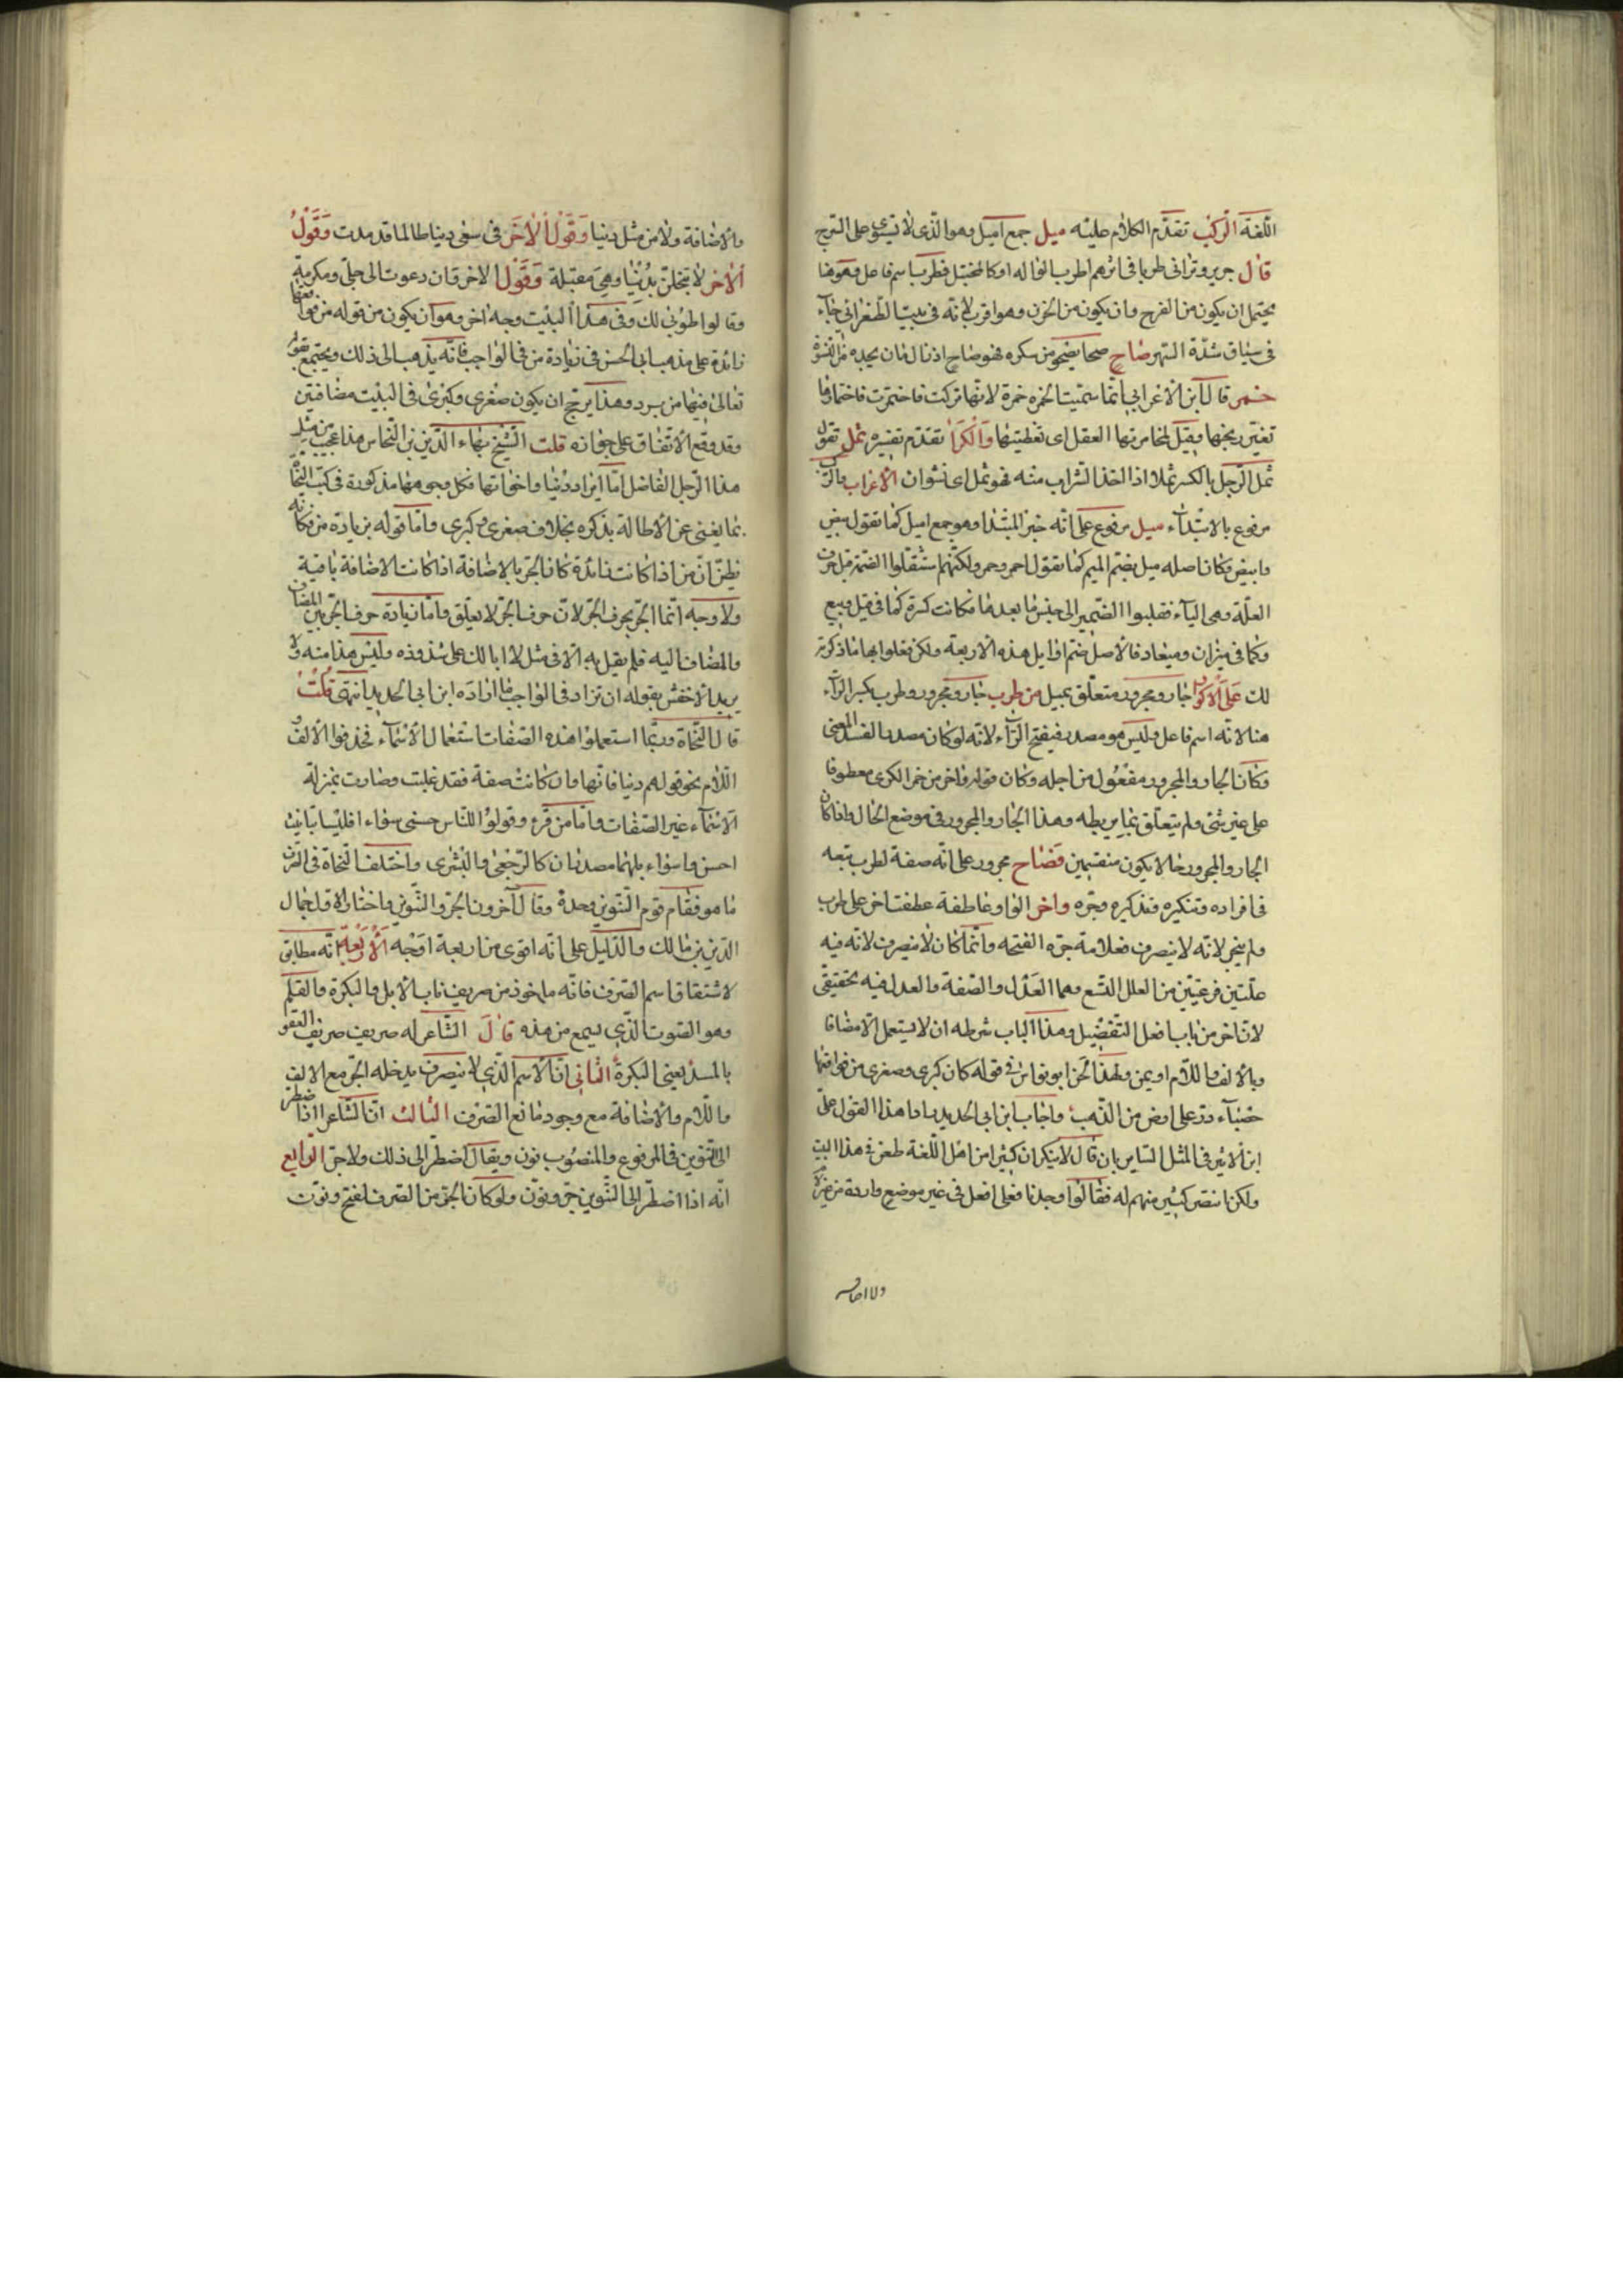 اللغة الركب تقدم الكلام عليه ميل جمع اميل وهو الذى لا يستوى على السرج
قال جرير وترانى طربا فى اثرهم طرب الواله او كالمختبل فطرب اسم فاعل وهو هنا
يحتمل ان يكون من الفرح وان يكون من الحزن وهو اقرب لانه فى بيت الطغرائى جاء
فى سياق شدة السهر صاح صحا يصحو من سكره فهو صاح اذا زال ما كان يجده من النشوة
خمر قال ابن الاعرابى انما سميت الخمرة خمرة لانها تركت فاختمرت فاختمارها
تغير ريحها وقيل لمخامرتها العقل اى تغطيتها والكرا تقدم تفسيره ثمل تقول
ثمل الرجل بالكسر ثملا اذا اخذ الشراب منه فهو ثمل اى نشوان الاعراب والركب
مرفوع بالابتداء ميل مرفوع على انه خبر المبتدا وهو جمع اميل كما تقول بيض
وابيض وكان اصله ميل بضم الميم كما تقول احمر وحمر ولكنهم استثقلوا الضمة قبل حرف
العلة وهى الياء فقلبوا الضمير الى جنس ما بعدها فكانت كسرة كما فى قيل وبيع
وكما فى ميزان وميعاد فالاصل ضم اوايل هذه الاربعة ولكن فعلوا بها ما ذكرته
لك على الاكوار جار ومجرور متعلق بميل من طرب جار ومجرور وطرب بكسر الراء
هنا لانه اسم فاعل وليس هو مصدر فيفتح الراء لانه لو كان مصدرا لفسد المعنى
وكان الجار والمجرور مفعول من اجله وكان قوله واخر من خمر الكرى معطوفا
على غير شئ ولم يتعلق بما يربطه وهذا الجار والمجرور فى موضع الحال واذا كان
الجار والمجرور حالا يكون منقسمين فصاح مجرور على انه صفة لطرب تبعه
فى افراده وتنكيره وتذكيره وجره واخر الواو عاطفة عطفت اخر على طرب
ولم ينجر لانه لا ينصرف فعلامة جره الفتحة وانما كان لا ينصرف لانه فيه
علتين فرعيتين من العلل التسع وهما العدل والصفة والعدل فيه تحقيقى
لان اخر من باب افعل التفضيل وهذا الباب شرطه ان لا يستعمل الا مضافا
وبالالف واللام او بمن ولهذا لحن ابو نواس فى قوله كان كبرى وصغرى من فواقعها
حصباء در على ارض من الذهب واجاب ابن ابى الحديد لما هذا القول على
ابن الاثير فى المثل الساير بان قال لا ينكر ان كثيرا من اهل اللغة طعن فى هذا البيت
ولكن انتصر كثير منهم له فقالوا وجدنا فعلى افعل فى غير موضع واردة من غير
ولا اضافه
والاضافة ولا من مثل دنيا وقول الاخر فى سعى دنيا طالما قد مدت وقول
الاخر لا تبخلن بدنيا وهى مقبلة وقول الاخر وان دعوت الى جلى ومكرمة
وقالوا طوبى لك وفى هذا البيت وجه اخر وهو ان يكون من قوله من فواقعها
زائدة على مذهب ابى الحسن فى زيادة من فى الواجب فانه يذهب الى ذلك ويحتج بقوله
تعالى فيها من برد وهذا يرجح ان يكون صغرى وكبرى فى البيت مضافتين
وقد وقع الاتفاق على جوازه قلت الشيخ بهاء الدين بن النحاس هذا عجيب من مثل
هذا الرجل الفاضل اما ايراد دنيا واخواتها فكل وجوهها مذكورة فى كتب النحاة
بما يغنى عن الاطالة بذكره بخلاف صغرى وكبرى واما قوله بزيادة من فكانه
يظن ان من اذا كانت زائدة كان الجر بالاضافة اذا كانت الاضافة باقية
ولا وجه انما الجر بحرف الجر لان حرف الجر لا يعلق واما زيادة حرف الجر بين المضاف
والمضاف اليه فلم يقل به الا فى مثل لا ابا لك على شذوذه وليس هذا منه ولا
يريد الاخفش بقوله ان تزاد فى الواجب ما اراده ابن ابى الحديد انتهى قلت
قال النحاة وربما استعملوا هذه الصفات استعمال الاسماء فحذفوا الالف
اللام نحو قولهم دنيا فانها وان كانت صفة فقد غلبت وصارت بمنزلة
الاسماء غير الصفات واما من قرء وقولوا للناس حسنى سواء افليسا بتانيث
احسن واسواء بل هما مصدران كالرجعى والبشرى واختلف النحاة فى الصرف
ما هو فقام قوم التنوين وحده وقال آخرون الجر والتنوين واختار الاول جمال
الدين بن مالك والدليل على انه اقوى من اربعة اوجه الاربعة انه مطابق
لاشتقاق اسم الصرف فانه ماخوذ من صريف ناب الابل والبكرة والقلم
وهو الصوت الذى يسمع من هذه قال الشاعر له صريف صريف القعو
بالمسد يعنى البكرة الثانى ان الاسم الذى لا ينصرف يدخله الجر مع الالف
واللام والاضافة مع وجود مانع الصرف الثالث ان الشاعر اذا اضطر
الى التنوين فى المرفوع والمنصوب نون ويقال اضطر الى ذلك ولا جر الرابع
انه اذا اضطر الى التنوين جر ونون ولو كان الجر من الصرف لفتح ونون